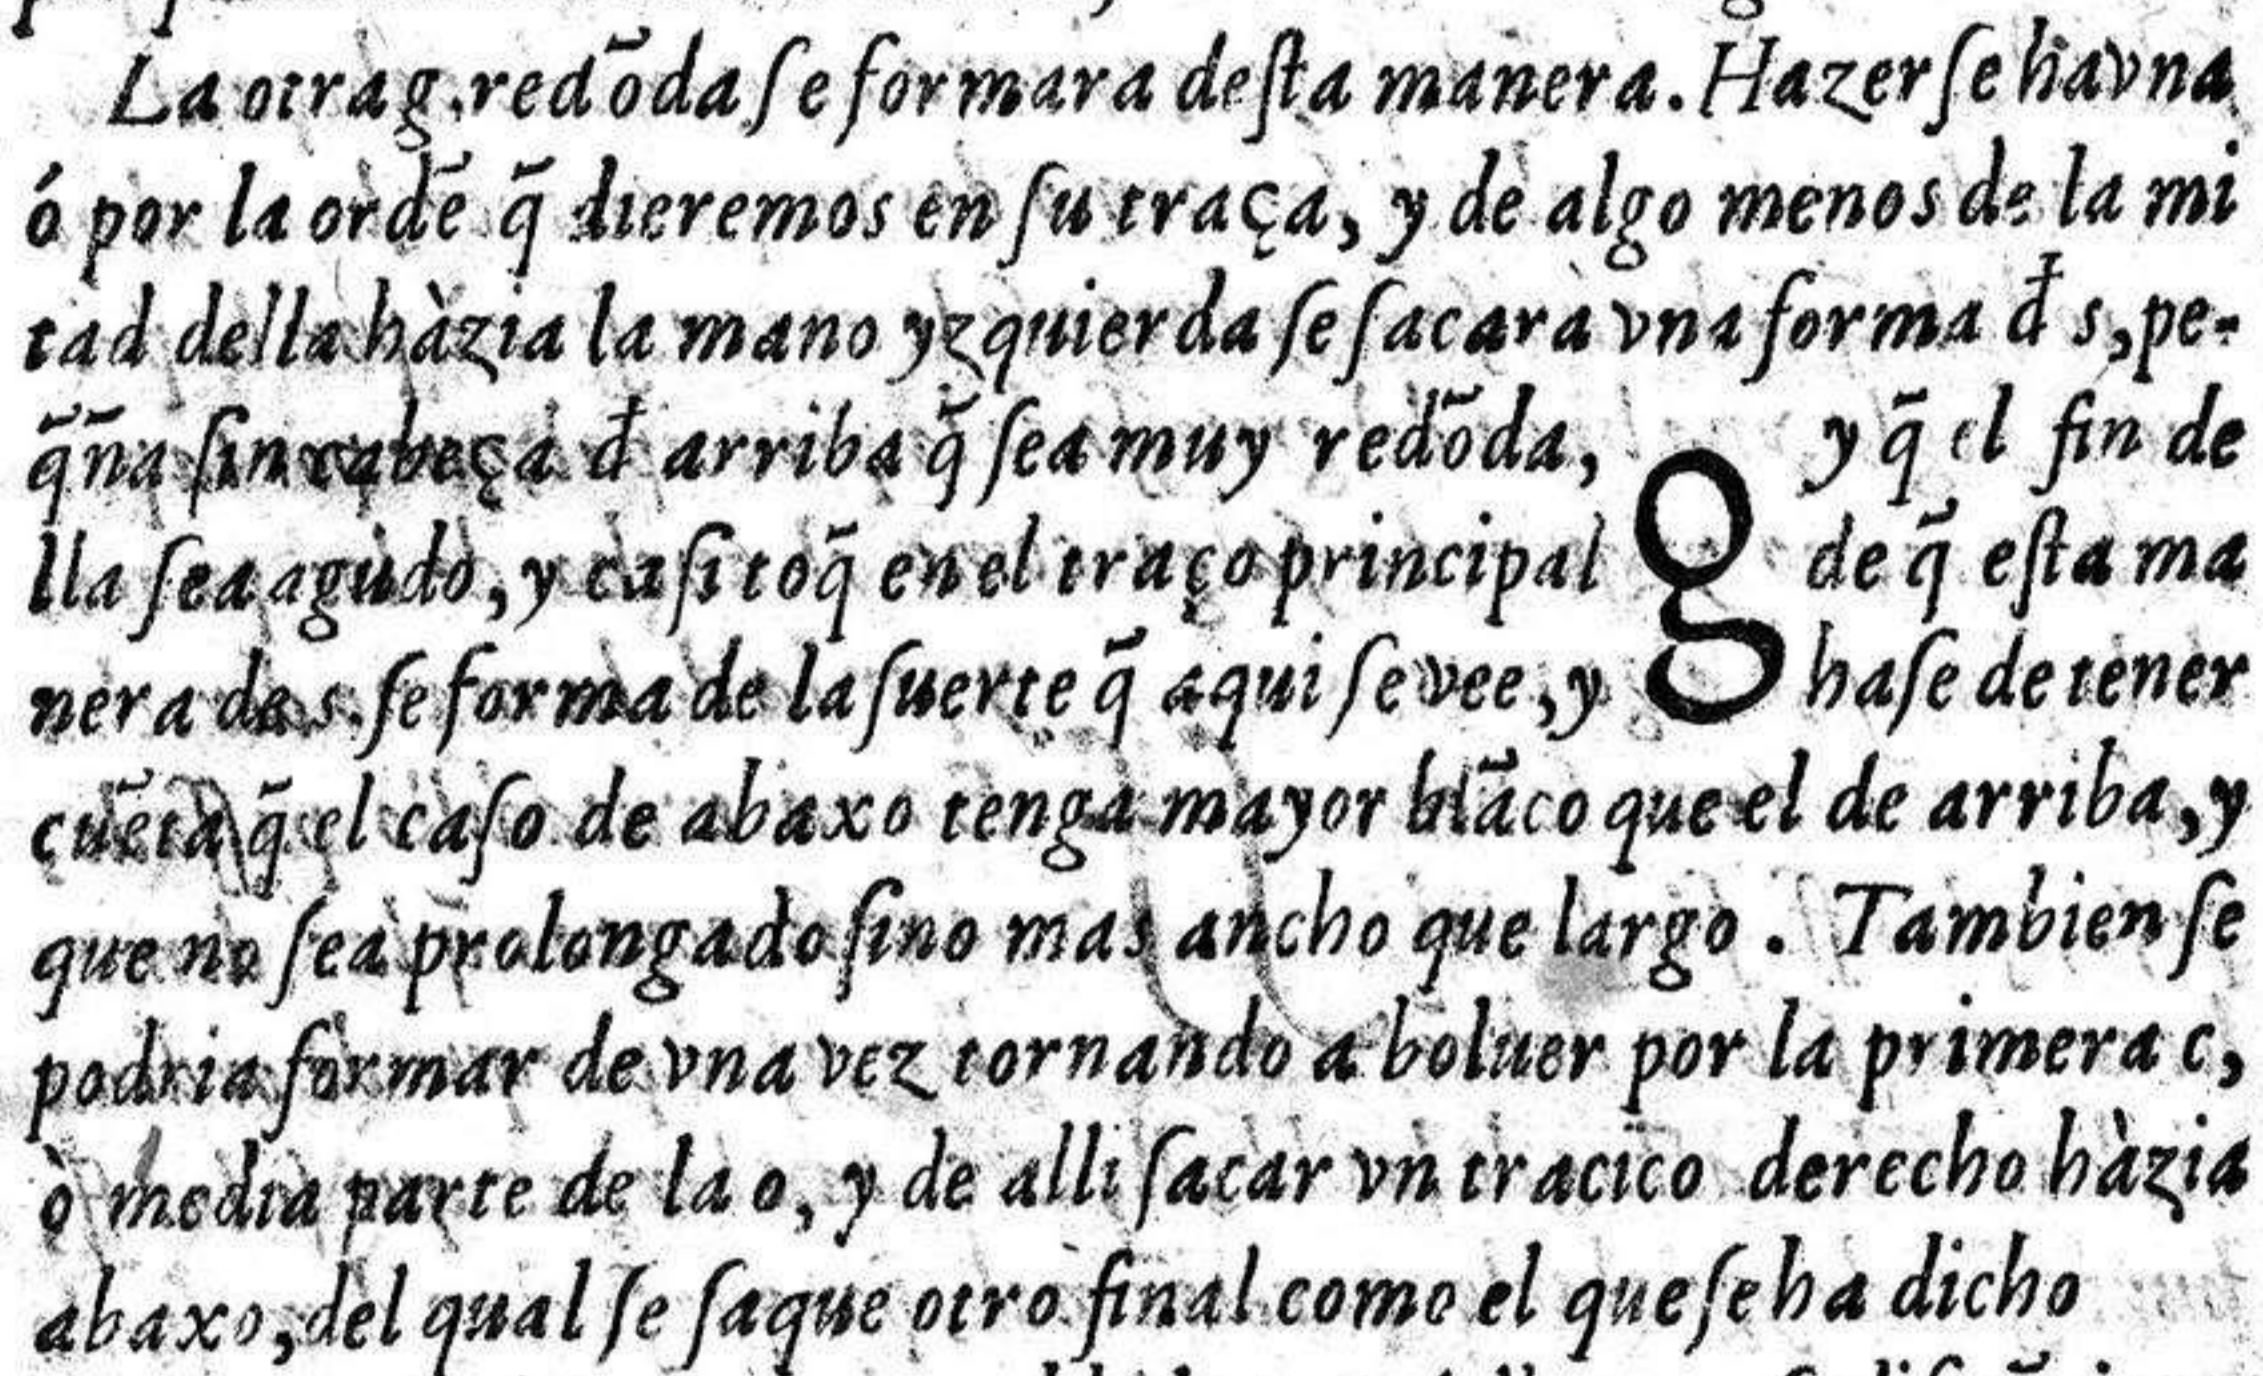 La otra g. redõda ſe formara deſta manera. Hazerſe ha vna
ó por la ordẽ q̃ dieremos en ſu traça, y de algo menos de la mi
tad della hàzia la mano yzquierda ſe ſacara vna forma đ s, pe-
q̃ña ſin cabeça đ arriba q̃ ſea muy redõda, y q̃ el fin de
lla ſea agudo, y caſi toq̃ en el traço principal g de q̃ eſta ma
nera de s. ſe forma de la ſuerte q̃ aqui ſe vee, y haſe de tener
cuẽta q̃ el caſo de abaxo tenga mayor blãco que el de arriba, y
que no ſea prolongado ſino mas ancho que largo. Tambien ſe
podria formar de vna vez tornando a boluer por la primera c,
ò media parte de la o, y de alli ſacar vn tracico derecho hàzia
abaxo, del qual ſe ſaque otro final como el que ſe ha dicho